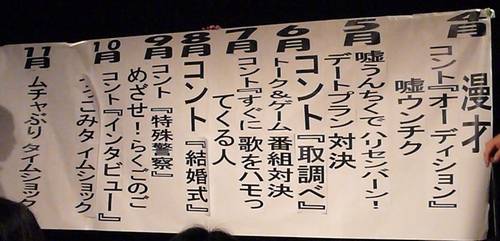 4月
漫才
コント『オーディション』
嘘ウンチク
5月
嘘うんちくでハリセンバーン!
デートプラン対決
6月
コント『取調べ』
トーク&ゲーム番組対決
7月
コント『すぐに歌をハモっ
てくる人』
8月
コント『結婚式』
9月
コント『特殊警察』
めざせ!らくごのご
10月
コント『インタビュー』
つっこみタイムショック
11月
ムチャぶりタイムショック